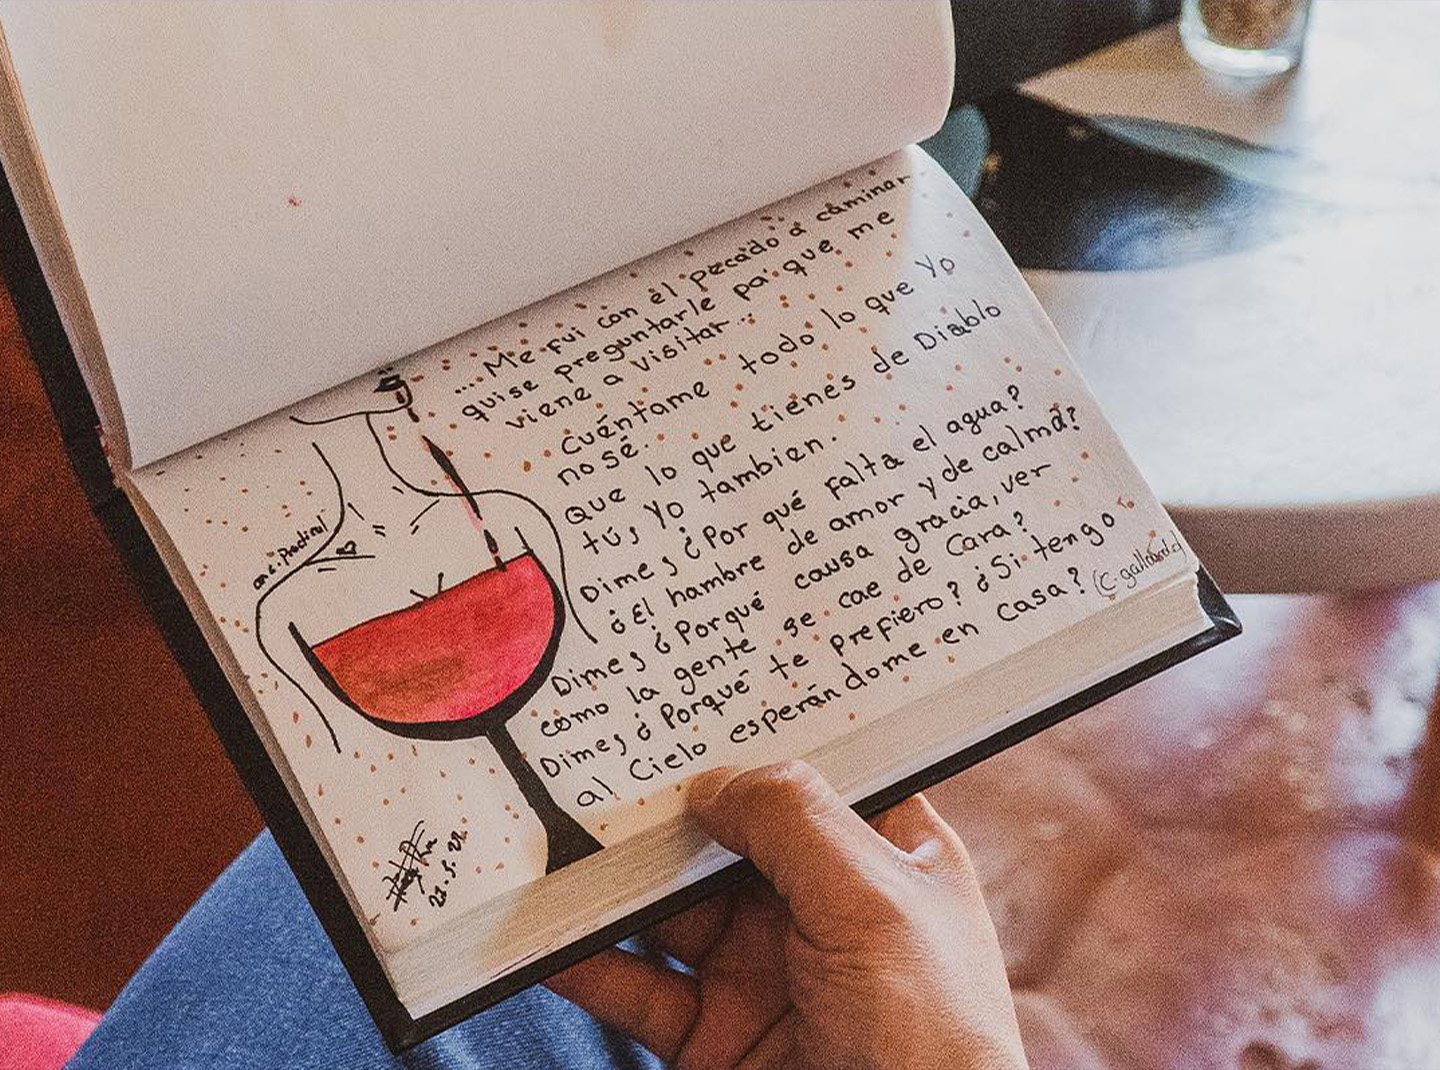 .... Me fui con el pecado a caminar
quise preguntarle pa' que me
viene a visitar...
Cuéntame todo lo que yo
no sé.
Que lo que tienes de Diablo
tú, yo tambien.
Dime, ¿Por qué falta el agua?
¿El hambre de amor y de calma?
Dime, ¿Porqué causa gracia, ver
como la gente se cae de cara?
Dime, ¿Porqué te prefiero? ¿Si tengo
al Cielo esperándome en casa?
21.5.22